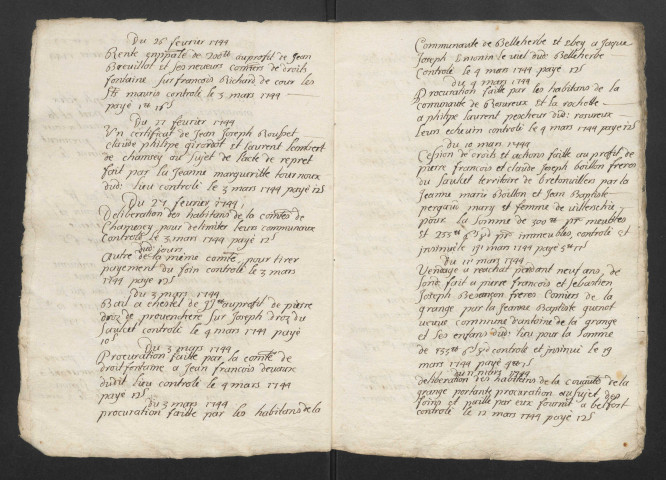 Du 26 fevrier 1744
Rente annuale de 200tt auprofit de Jean
Breuillot et ses neveurs Comiers de droit
fontaine sur francois Richard de cour les
St mauris controlé le 3 mars 1744
payé 1tt 16s
Du 27 fevrier 1744
Un certificat de Jean Joseph
claude philipe girardot et laurent lambert
de chamsey au sujet de lacte de repret
fait par la Jeanne margueritte tournoux
dud: lieu controlé le 3 mars 1744 payé 12s
Du 27 fevrier 1744
Deliberation des habitans de la comtée de
Chamesey pour delimiter leur communaux
Controlé le 3 mars 1744 payé 12s
dud: jour
Autre de la même comté pour tirer
payement du foin controlé le 3 mars
1744 payé 12s
Du 3 mars 1744
Bail a chestel de 37tt auprofit de pierre
droz de provenchere sur Joseph droz du
Saulcet controlé le 4 mars 1744 payé
10s
Du 3 mars 1744
Procuration faitte par la comté de
droitfontaine a Jean francois devaux
dudit lieu controlé le 4 mars 1744
payé 12s
Du 3 mars 1744
procuration faitte par les habitans de la
Communaute de Belleherbe et Ebey a Jaque
Joseph monin le viel dud: Belleherbe
Controlé le 4 mars 1744 payé 12s
du 4 mars 1744
Procuration faitte par les habitans de la
communauté de Rosureux et la rochelle
a philipe laurent pescheur dud: rosureux
leur echevin controlé le 4 mars 1744 payé 12s
Du 10 mars 1744
Cession de droits et actions faitte au profit de
pierre francois et claude Joseph boillon freres
du Saulcet territoire de bretonvillers par la
Jeanne marie Boillon et Jean Baptiste
perguad mary et femme de
pour la somme de 300tt pr meubles
et 255tt 6s 8d pr immeubles, controlé et
insinué le 19 mars 1744 payé 5tt
Du 11 mars 1744
Vendage a reachat pendant neuf ans, de
fond fait a pierre francois et Sebastien
Joseph Besançon freres Comiers de la
grange par la Jeanne Baptiste quenot
veuve commune d'antoine de la grange
et ses enfans dud: lieu pour la somme
de 533tt 6s 8d controlé et insinué le 19
mars 1744 payé 4tt
du 11 mars 1744
deliberation des habitans de la comunté de la
grange portante procuration au sujet des
foins et paille par eux fournit a belfort
controlé le 12 mars 1744 payé 12s